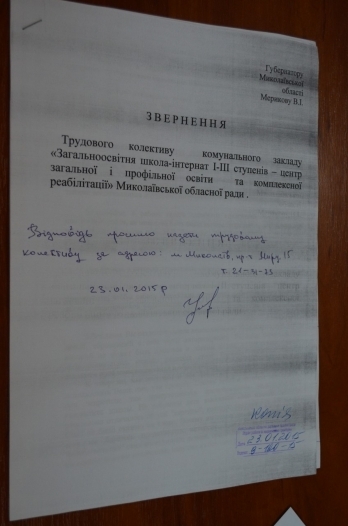 Губернатору
Миколаївської
області
Мерикову В.І.
ЗВЕРНЕННЯ
Трудового колективу комунального закладу
«Загальноосвітня школа-інтернат І-ІІІ ступенів – центр
загальної і профільної освіти та комплексної
реабілітації» Миколаївської обласної ради.
Відповідь просимо надати трудовому
колективу за адресою: м. Миколаїв,
23.01.2015р
Копія
23.01.2015